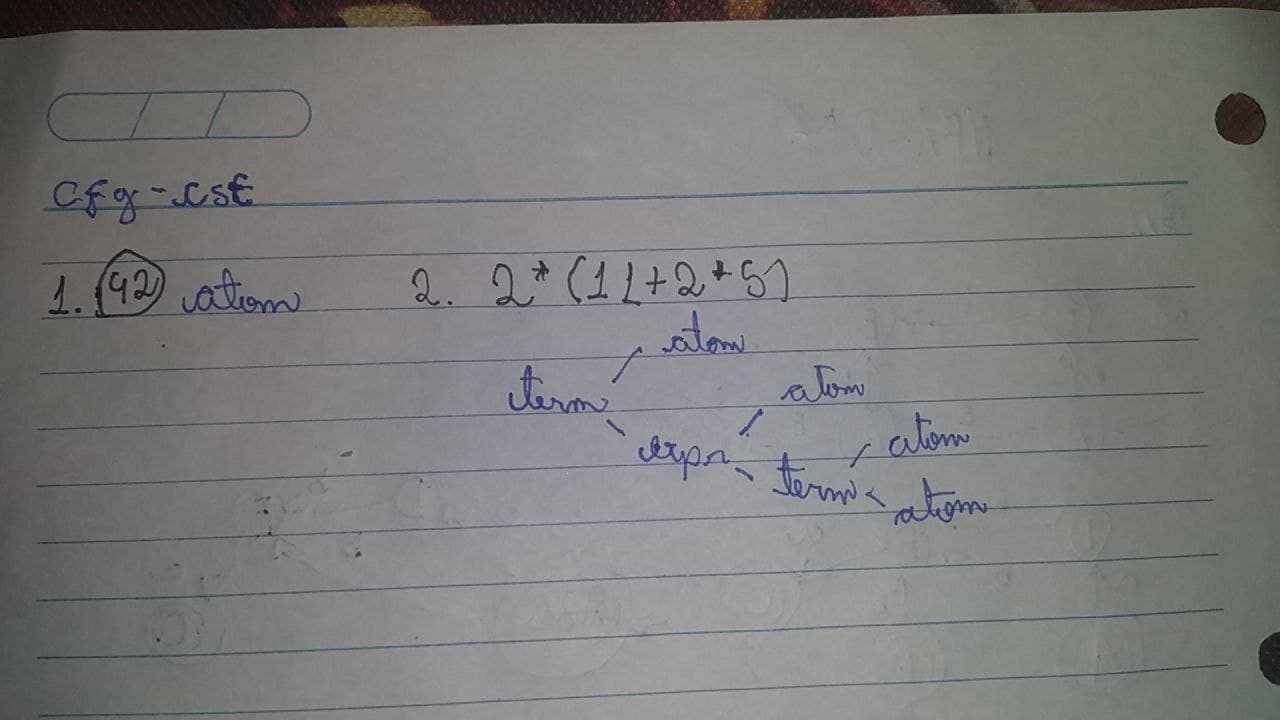 cfg - cst
1. 42 atom 2. 2*(11+2*5)
atom
term atom
expr atom
term
atom